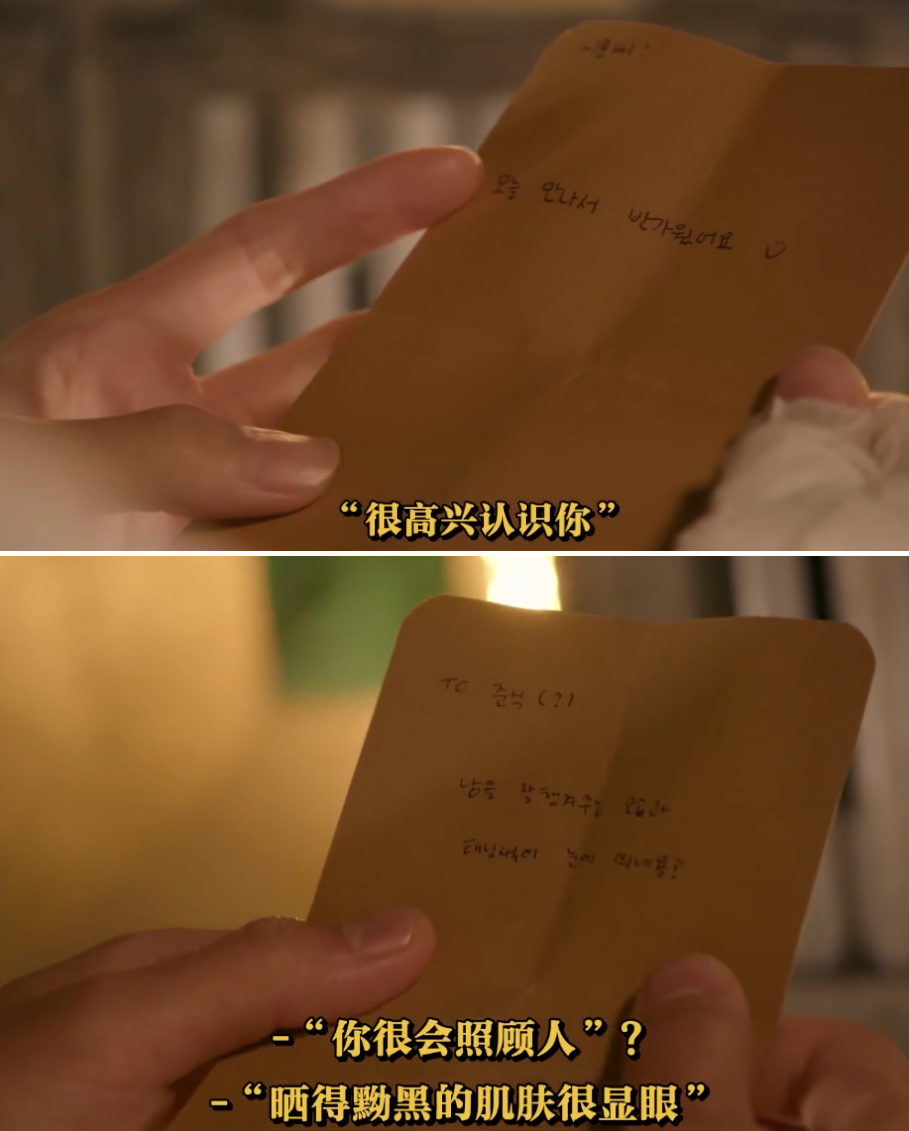 오늘 만나서 반가웠어요
“很高兴认识你”
TO. 준석 (?)
남을 잘 챙겨주는 모습과
태닝 눈에 띄네용?
-“你很会照顾人”？
-“晒得黝黑的肌肤很显眼”